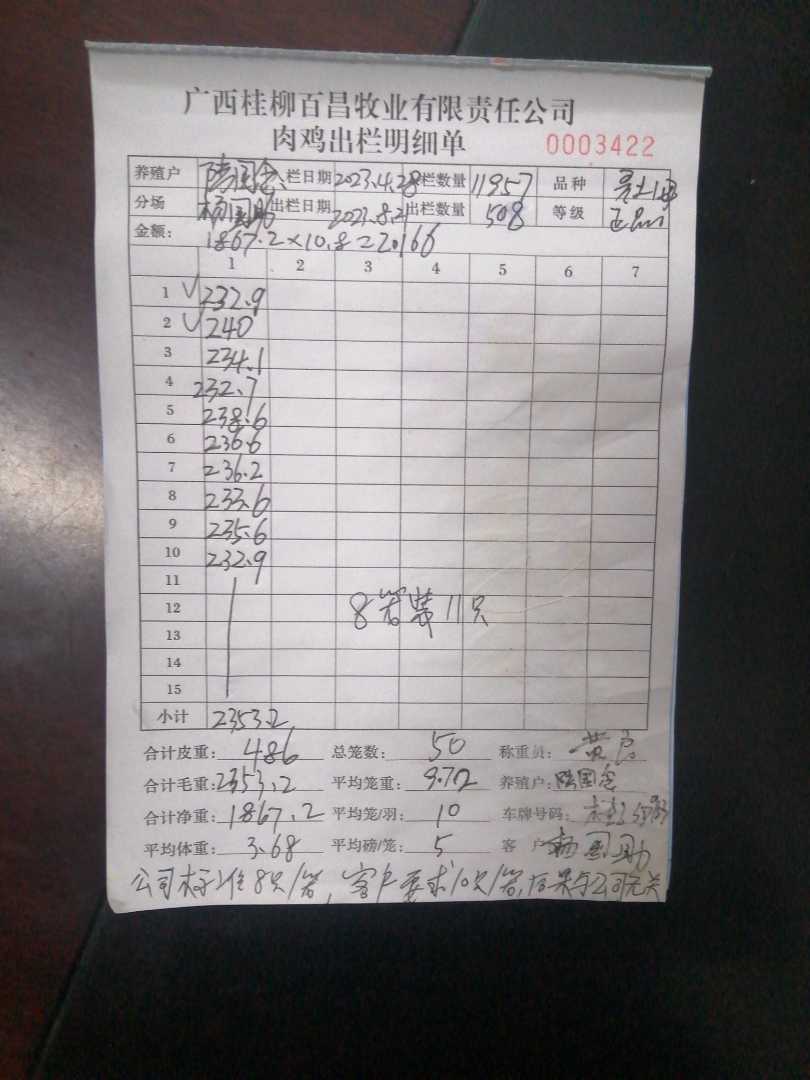 广西桂柳百昌牧业有限责任公司
肉鸡出栏明细单 0003422
养殖户 陆国 栏日期 2023.4.28 栏数量 11957 品种
分场 杨国助 出栏日期 2023.8.21 出栏数量 508 等级 正品
金额: 1867.2×10.8=20166
1 2 3 4 5 6 7
1 √ 232.9
2 √ 240
3 234.1
4 232.7
5 238.6
6 236.6
7 236.2
8 233.6
9 235.6
10 232.9
11
12 8笼装11只
13
14
15
小计 2353.2
合计皮重: 486 总笼数: 50 称重员: 黄
合计毛重: 2353.2 平均笼重: 9.72 养殖户: 陆国
合计净重: 1867.2 平均笼/羽: 10 车牌号码: 桂
平均体重: 3.68 平均磅/笼: 5 客户 杨国助
公司标准8只/笼,客户要求10只/笼,后果与公司无关